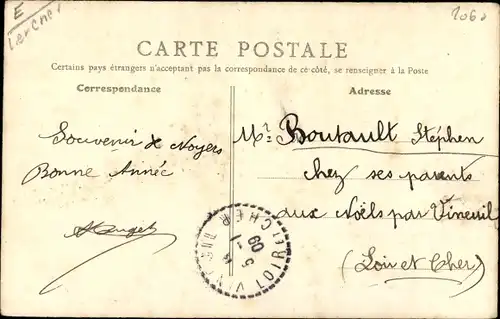 E
2060
CARTE POSTALE
Certains pays étrangers n'acceptant pas la correspondance de ce côté, se renseigner à la Poste
Correspondance
Adresse
Souvenir de Noyers
Bonne Année
Mr. Boutault Stéphen
chez ses parents
aux Noëls par Vineuil
(Loir et Cher)